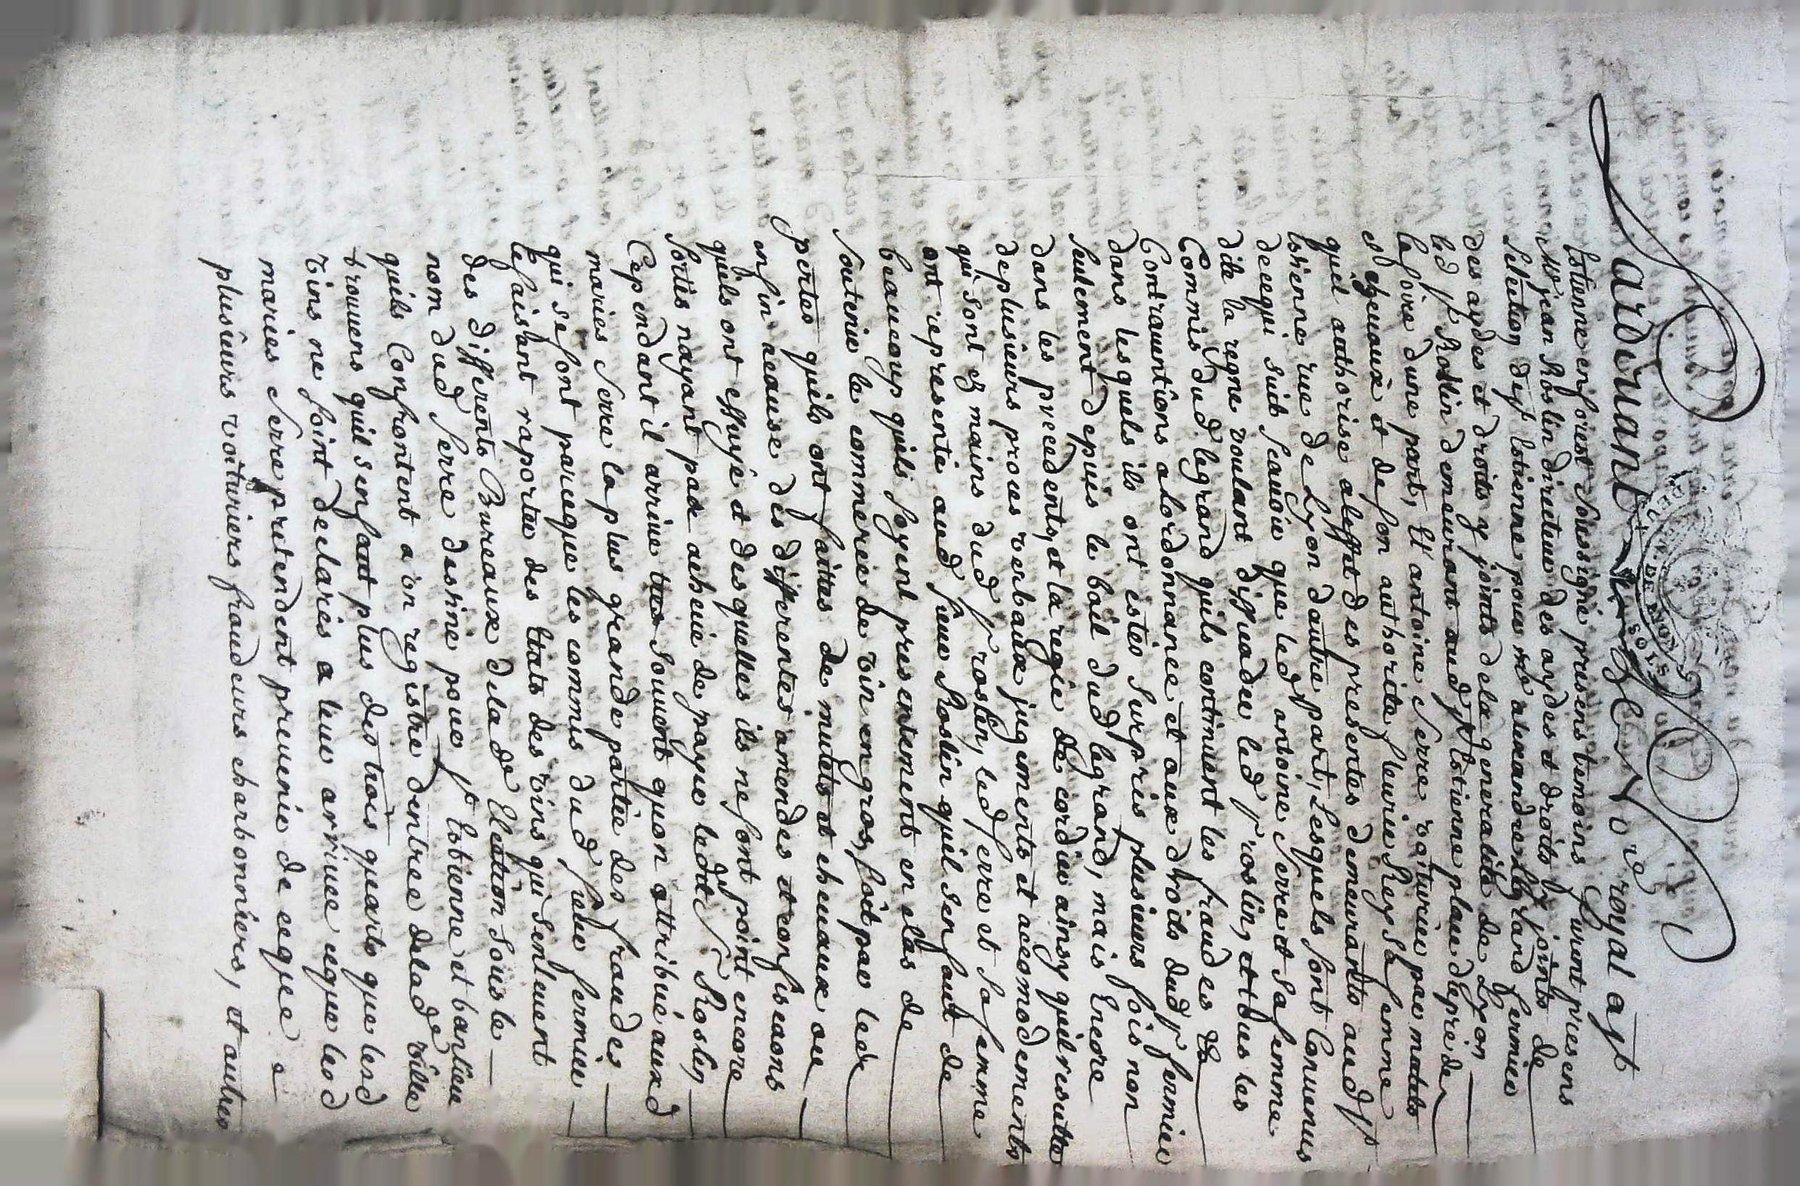 Pardevant le Nore royal a st
Estienne en forest soussigné presens temoins furent presens
Mr jean Roslin directeur des aydes et droits y joints de
l'election de st Estienne pour me alexandre legrand fermier
des aydes et droits y joints de la generalité de Lyon
led sr Roslin demeurant aud st Estienne place du pré de
la foire d'une part, Et antoine Serre voiturier par mulets
et chevaux et de son authorité fleurie Rey sa femme
quil authorise a leffet des presentes demeurants aud st
Estienne rue de Lyon dautre part, Lesquels sont Convenus
de ce qui suit scavoir que led antoine Serre et sa femme
dite la regne voulant dissuader led sr roslin, et tous les
Commis dud legrand quils continuent les fraudes &
Contrauentions a lordonnance et aux droits dud sr fermier
dans lesquels ils ont estés surpris plusieurs fois non
seulement depuis le bail dud legrand, mais Encore
dans les precedents et la regie de cordier ainsy quil resulte
de plusieurs proces verbaux jugements et accomodements
qui sont ez mains dud sr roslin, led Serre et sa femme
ont representé aud sieur Roslin quil sen faut de
beaucoup quils soyent presentement en etas de
soutenir le commerce de vin en gros, soit par les
pertes quils ont faittes de mulets et chevaux ou
enfin acause des differentes amendes et confiscaons
quils ont essuyé et desquelles ils ne sont point encore
sortis nayant pas acheué de payer ledit sr Roslin
Cependant il arriue tres souuent quon attribue aux d
mariés Serre la plus grande partie des fraudes
qui se font parceque les commis dud sieur fermier
se faisant raporter des Etats des vins qui senleuent
des differents Bureaux de la de Election sous le
nom dud Serre destiné pour st Estienne et banlieue
quils Confrontent a un registre dentree de lad ville
trouuent quil sen faut plus des trois quarts que lesd
vins ne soint declarés a leur arriuee ce que lesd
mariés Serre pretendent prouenir de ce que
plusieurs voituriers fraudeurs charbonniers, et autres
DEUX SOLS